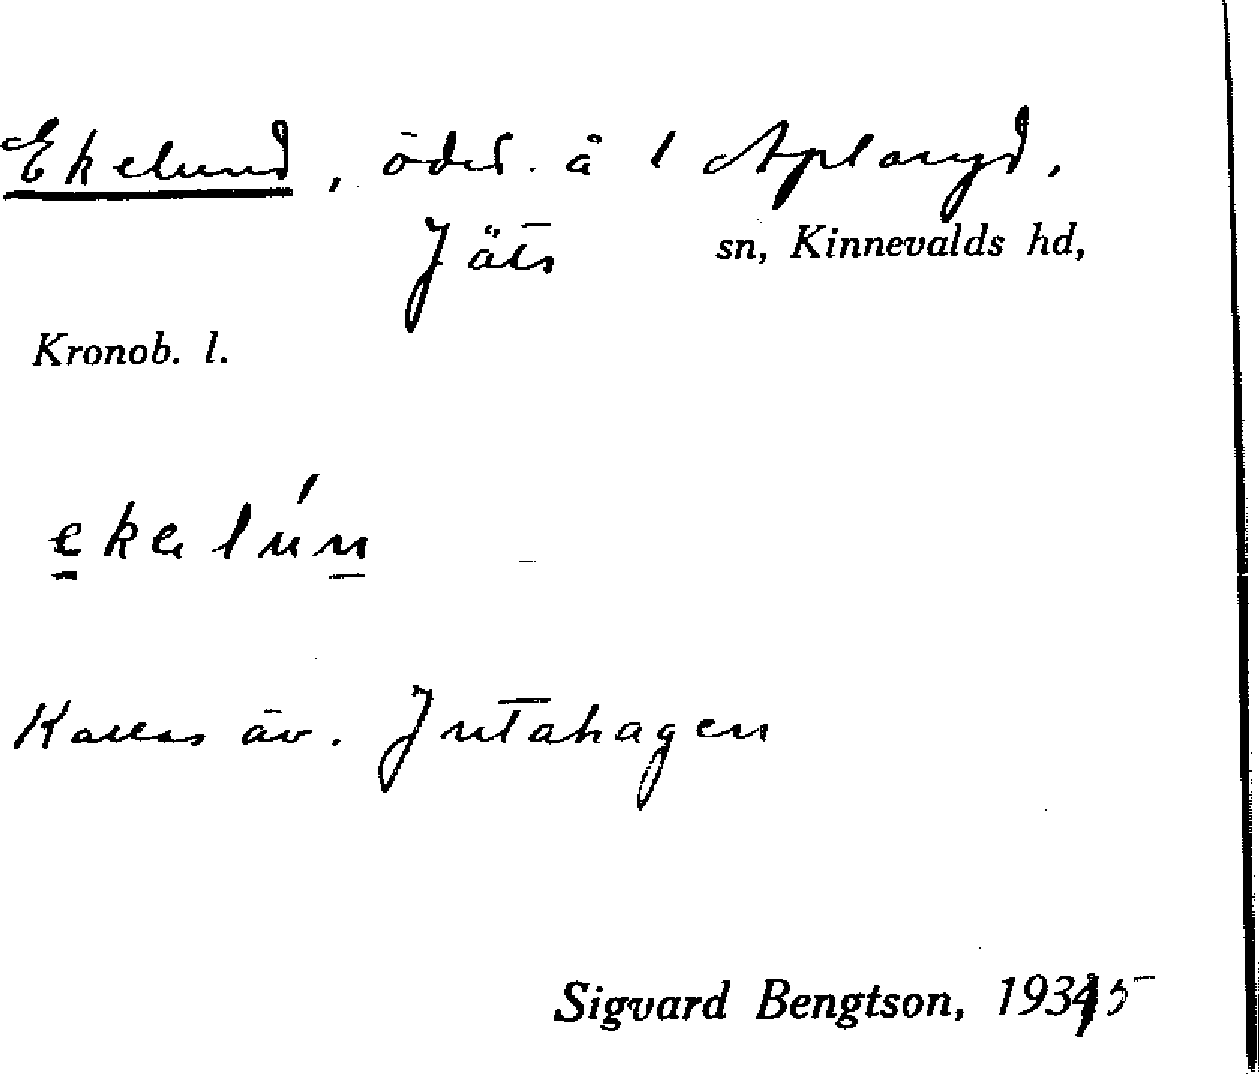 Ekelund, öded. å 1 Aplaryd,
Jäts sn, Kinnevalds hd,
Kronob. l.
ekalún
Kallas äv. Jutahagen
Sigvard Bengtson, 1935